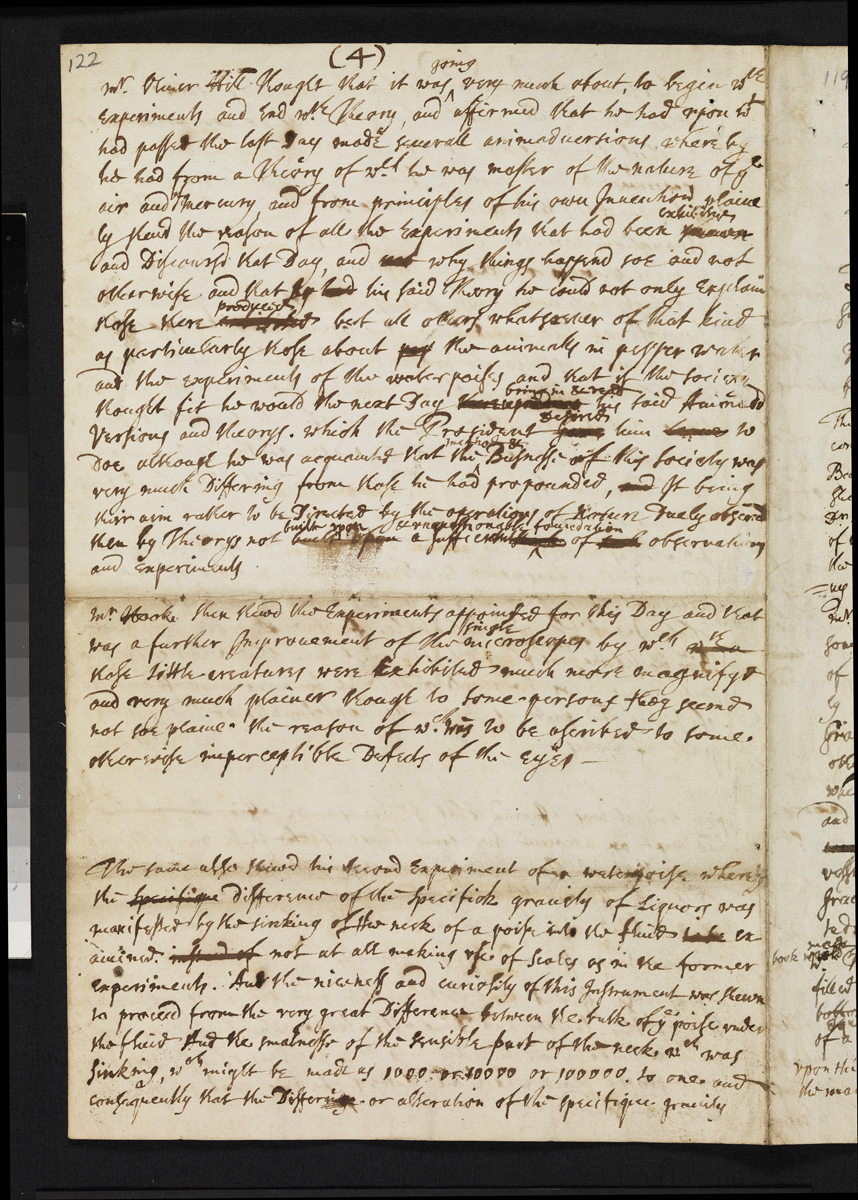 122
(4)
going
mr. Oliver Hill thought that it was very much about, to begin wth
Experiments and End wth Theory, and affirmed that he had upon wt
had passed the last Day made severall animadversions whereby
he had from a Theory of wch he was master of the nature of ye
air and mercury, and from principles of his own Invention plaine
exhibited
ly shewd the reason of all the Experiments that had been shewn
and Discoursd that Day, and not why things happend soe and not
otherwise and that by had his said Theory he could not only Explain
produced
those there but all others whatsoever of that kind
as particularly those about the animalls in pepper water
and the experiments of the waterpoises and that if the Society
thought fit he would the next Day his said Animad
bring in
desired
Versions and theorys. which the President gave him to
method &
Doe although he was acquainted that the Business of this Society was
very much Differing from those he had propounded, and It being
their aim rather to be Directed by the operations of Nature Duely observd
built upon
unquestionable foundation
then by Theorys not built upon a sufficient of such observations
and Experiments
mr. Hooke then shewd the Experiments appointed for this Day and that
single
was a further Improvement of the microscopes by wch
those little creatures were Exhibited much more magnifyd
and very much plainer though to some persons they seemd
not soe plaine. the reason of wch was to be ascribed to some
otherwise imperceptible Defects of the Eyes
The same also shewd his second Experiment of a waterpoise whereby
the Specifique difference of the Specifick gravity of Liquors was
manifested by the sinking of the neck of a poise into the fluid Ex
amined. instead of not at all making use of Scales as in the former
Experiments. And the niceness and curiosity of this Instrument was shewn
to proceed from the very great Difference between the bulk of ye poise under
the fluid And the smalnesse of the sensible part of the neck wch was
sinking, wch might be made as 1000 or 10000 or 100000. to one. and
consequently that the Differing or alteration of the specifique gravity